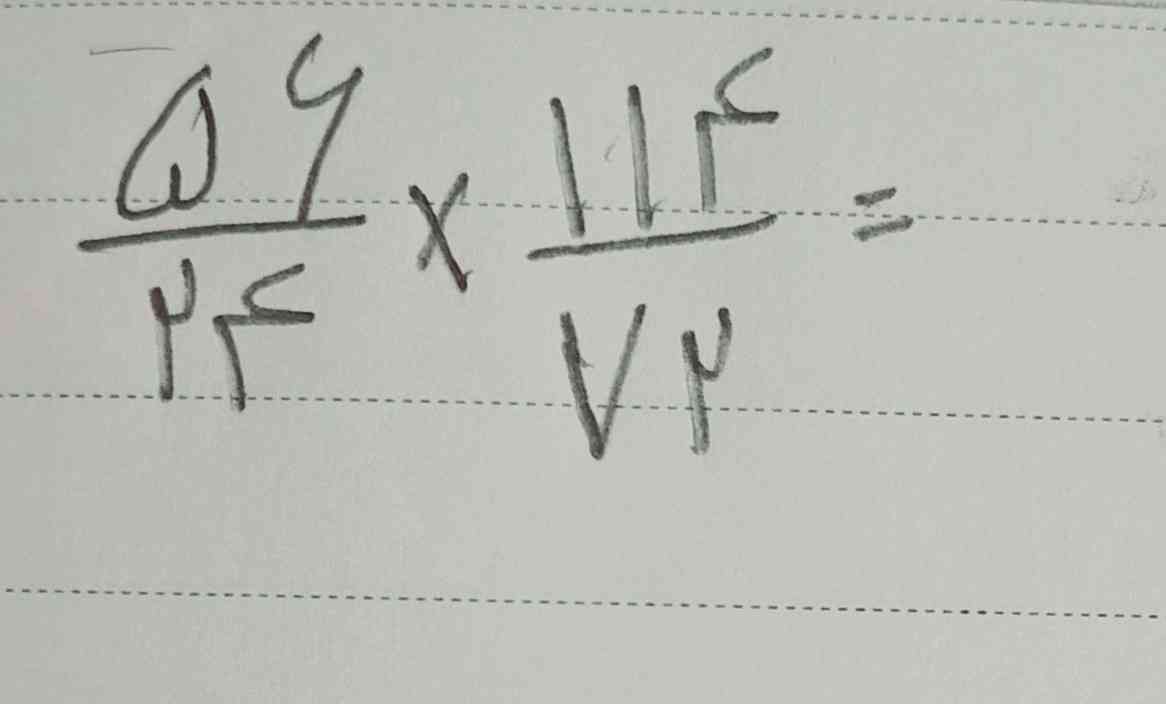 ۵۶/۲۴ × ۱۱۴/۷۲ =